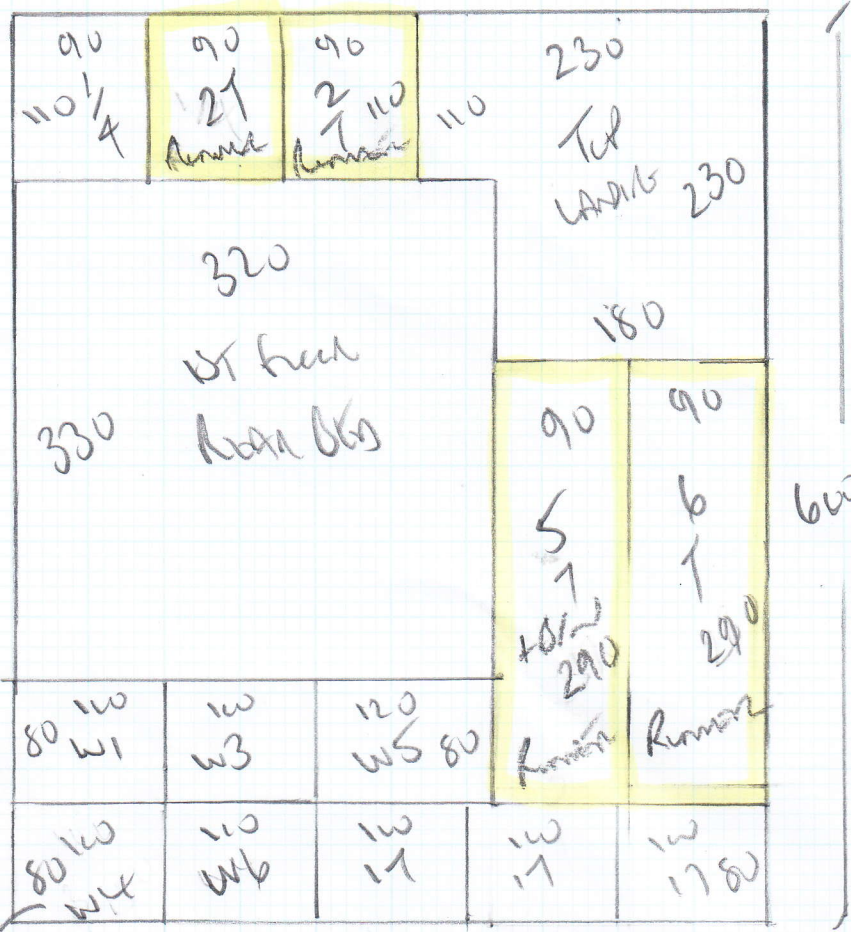 90
110 1/4
90
2T
Runner
90
2
T 110
Runner
110
230
TOP
LANDING 230
180
320
1ST FLOOR
330 REAR BED
90
5
T
290
Runner
90
6
T
290
Runner
600
110
80 W1
110
W3
120
W5 80
110
80 W4
110
W6
110
1T
110
1T
110
1T 80